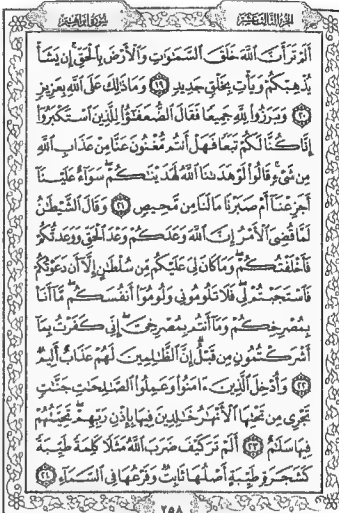 الجزء الثالث عشر سورة إبراهيم
أَلَمْ تَرَ أَنَّ ٱللَّهَ خَلَقَ ٱلسَّمَٰوَٰتِ وَٱلْأَرْضَ بِٱلْحَقِّ إِن يَشَأْ
يُذْهِبْكُمْ وَيَأْتِ بِخَلْقٍ جَدِيدٍ ١٩ وَمَا ذَٰلِكَ عَلَى ٱللَّهِ بِعَزِيزٍ
٢٠ وَبَرَزُوا۟ لِلَّهِ جَمِيعًا فَقَالَ ٱلضُّعَفَٰٓؤُا۟ لِلَّذِينَ ٱسْتَكْبَرُوٓا۟
إِنَّا كُنَّا لَكُمْ تَبَعًا فَهَلْ أَنتُم مُّغْنُونَ عَنَّا مِنْ عَذَابِ ٱللَّهِ
مِن شَىْءٍ قَالُوا۟ لَوْ هَدَىٰنَا ٱللَّهُ لَهَدَيْنَٰكُمْ سَوَآءٌ عَلَيْنَآ
أَجَزِعْنَآ أَمْ صَبَرْنَا مَا لَنَا مِن مَّحِيصٍ ٢١ وَقَالَ ٱلشَّيْطَٰنُ
لَمَّا قُضِىَ ٱلْأَمْرُ إِنَّ ٱللَّهَ وَعَدَكُمْ وَعْدَ ٱلْحَقِّ وَوَعَدتُّكُمْ
فَأَخْلَفْتُكُمْ وَمَا كَانَ لِىَ عَلَيْكُم مِّن سُلْطَٰنٍ إِلَّآ أَن دَعَوْتُكُمْ
فَٱسْتَجَبْتُمْ لِى فَلَا تَلُومُونِى وَلُومُوٓا۟ أَنفُسَكُم مَّآ أَنَا۠
بِمُصْرِخِكُمْ وَمَآ أَنتُم بِمُصْرِخِىَّ إِنِّى كَفَرْتُ بِمَآ
أَشْرَكْتُمُونِ مِن قَبْلُ إِنَّ ٱلظَّٰلِمِينَ لَهُمْ عَذَابٌ أَلِيمٌ
٢٢ وَأُدْخِلَ ٱلَّذِينَ ءَامَنُوا۟ وَعَمِلُوا۟ ٱلصَّٰلِحَٰتِ جَنَّٰتٍ
تَجْرِى مِن تَحْتِهَا ٱلْأَنْهَٰرُ خَٰلِدِينَ فِيهَا بِإِذْنِ رَبِّهِمْ تَحِيَّتُهُمْ
فِيهَا سَلَٰمٌ ٢٣ أَلَمْ تَرَ كَيْفَ ضَرَبَ ٱللَّهُ مَثَلًا كَلِمَةً طَيِّبَةً
كَشَجَرَةٍ طَيِّبَةٍ أَصْلُهَا ثَابِتٌ وَفَرْعُهَا فِى ٱلسَّمَآءِ ٢٤
٢٥٨